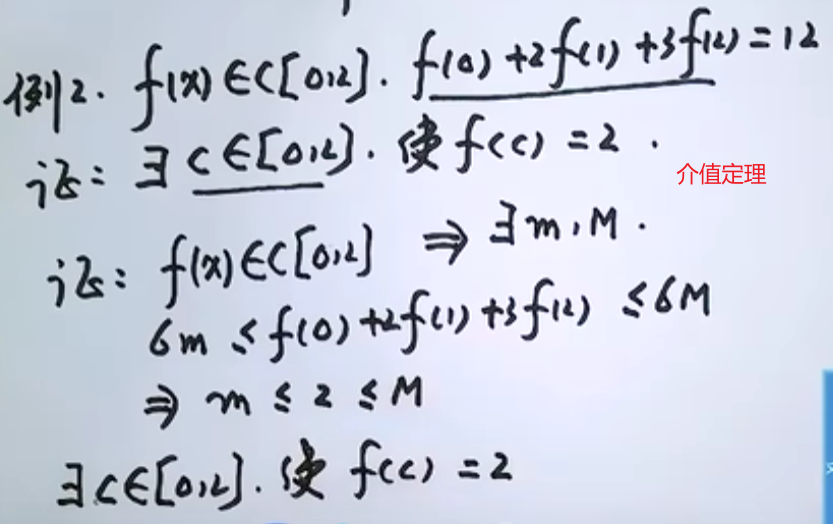 例2. f(x)∈C[0,2]. f(0)+2f(1)+3f(2)=12
证: ∃ c∈[0,2]. 使 f(c)=2.
介值定理
证: f(x)∈C[0,2] ⇒ ∃m,M.
6m≤f(0)+2f(1)+3f(2)≤6M
⇒ m≤2≤M
∃c∈[0,2]. 使 f(c)=2